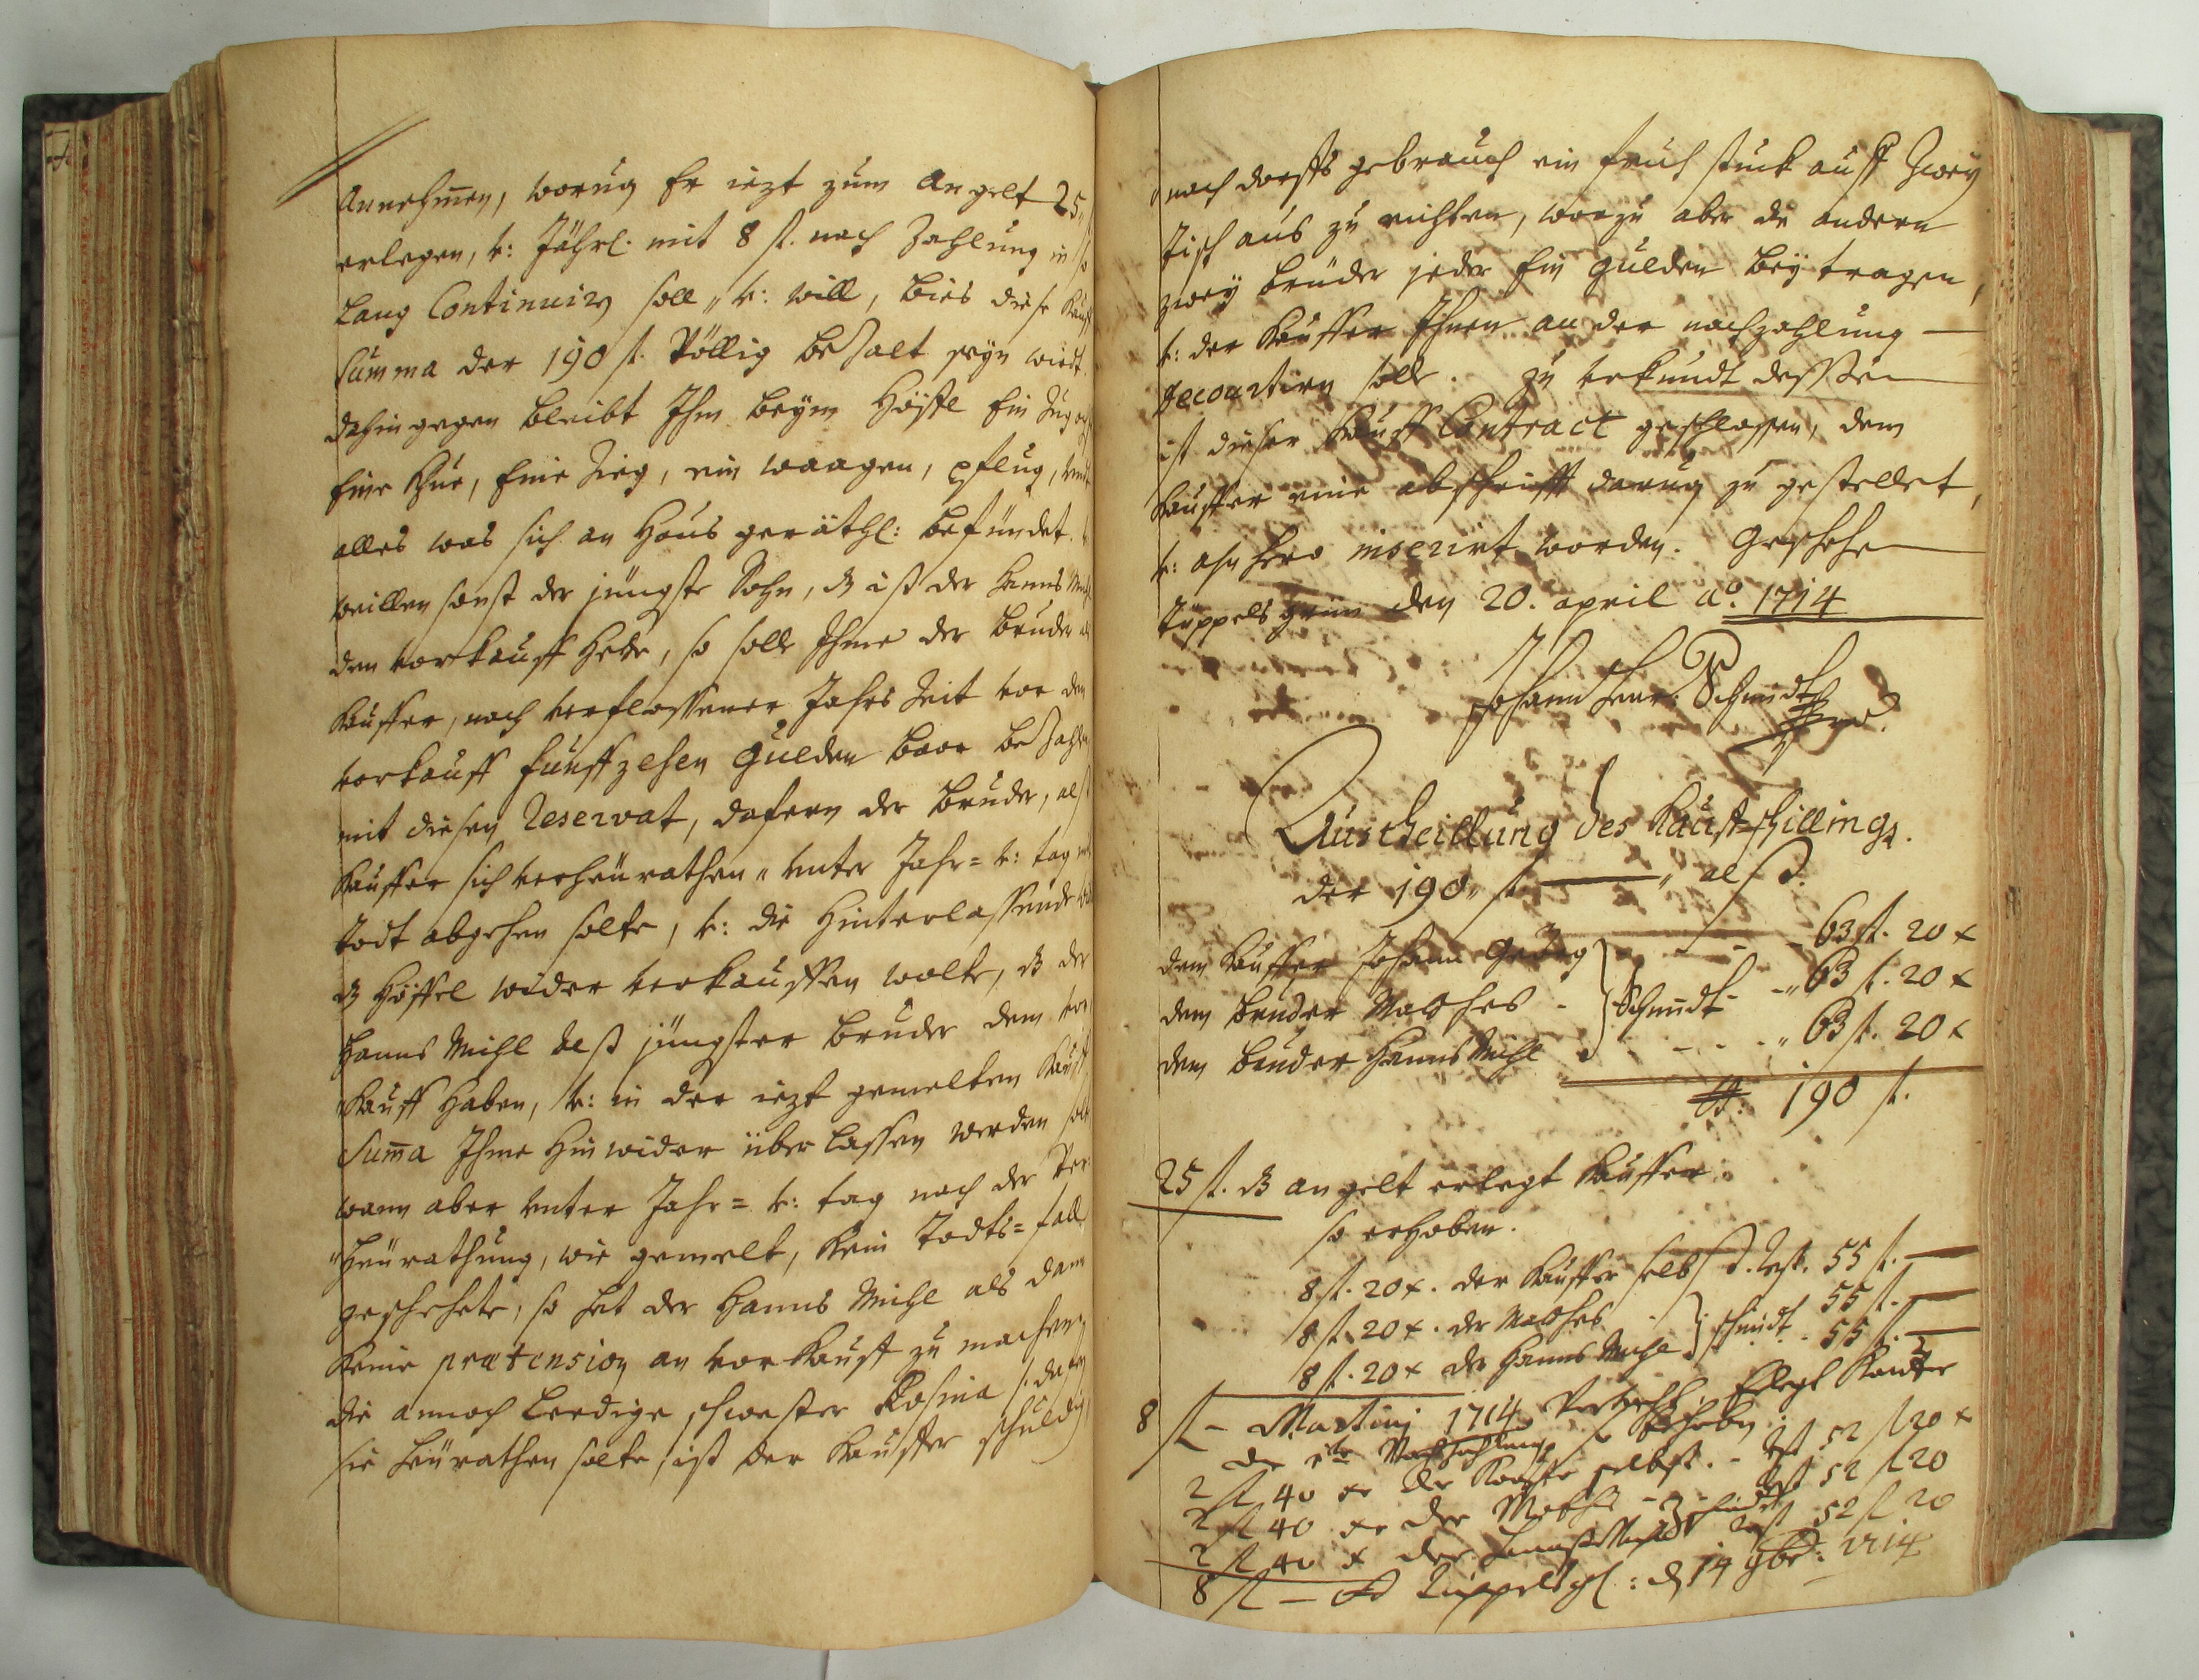 Annehmen, worzug Er iezt zum Angelt 25
erlegen, v: Jährl. mit 8 fl. nach Zahlung in so
lang Continuirn soll, v: will, bies diese Kauff
Summa der 190 fl. Völlig bezalt seyn wirdt
dahingegen bleibt Ihm beym Höffl Ein Zug
Eine Khue, Eine Zieg, ein waagen, pflug, vndt
alles was sich an Hausgeräthl: befündet.
weillen sonst der jüngste Sohn, dz ist der Hanns Michl
den vorkauff hette, so solle Ihme der Bruder als
Kauffer, nach verflossener Jahrs Zeit vor den
vorkauff funffzehen Gulden baar bezahlen
mit diesen Reservat, dafern der Bruder, alß
Kauffer sich verheurathen, vnter Jahr= v: tag mit
todt abgehen solte, v: die Hinterlassende
dz Höffel wider verkauffen wolte, dz der
Hanns Michl alß jüngster Bruder dem vor
Kauff haben, v: in der iezt gemelten Kauff
Summa Ihme hinwider überlassen werden solle
wann aber vnter Jahr= v: tag nach der Ver
heurathung, wie gemelt, kein Todts=fall
geschehete, so hat der Hanns Michl als dann
keine prætension an vorkauff zu machen,
die annoch leedige schwester Rosina s. dafern
sie heurathen solte, ist der Kauffer schuldig
nach dorffs gebrauch ein fruhstuck auff zwey
Tisch aus zu richten, worzu aber die andern
zwey brüder jeder Ein Gulden beytragen,
v: der Kauffer Ihnen an der nachzahlung
decourtirn solle. zu vrkundt dessen
ist dieser Kauff Contract geschlossen, dem
Kauffer eine abschrifft darvon zu gestellet,
v: ahn hero inserirt worden. Geschehen
Tüppelsgrün den 20. april ao. 1714
Johann Schmidt
Austheillung des Kauffschillings.
der 190 fl. alß.
dem Kauffer Johann Georg 63 fl. 20 x
dem bruder Mathes - Schmidt - 63 fl. 20 x
dem bruder Hanns Michl 63 fl. 20 x
190 fl.
25 fl. dz angelt erlegt Kauffer
so erhoben.
8 fl. 20 x. der Kauffer selbst. Rest. 55 fl.
8 fl. 20 x. der Mathes Schmidt 55 fl.
8 fl. 20 x der Hanns Michl 55 fl.
8 fl - Martinj 1714 Erlegt Kauffer
die 1te Nachzahlung so Erhoben
2 fl 40 xr der Kauffer selbst. - Rest 52 fl 20 x
2 fl 40 xr der Mathes - Schmidt Rest 52 fl 20
2 fl 40 x der Hannß Michl Rest 52 fl 20
8 fl - Tüppelsgl: d 14 9br: 1714